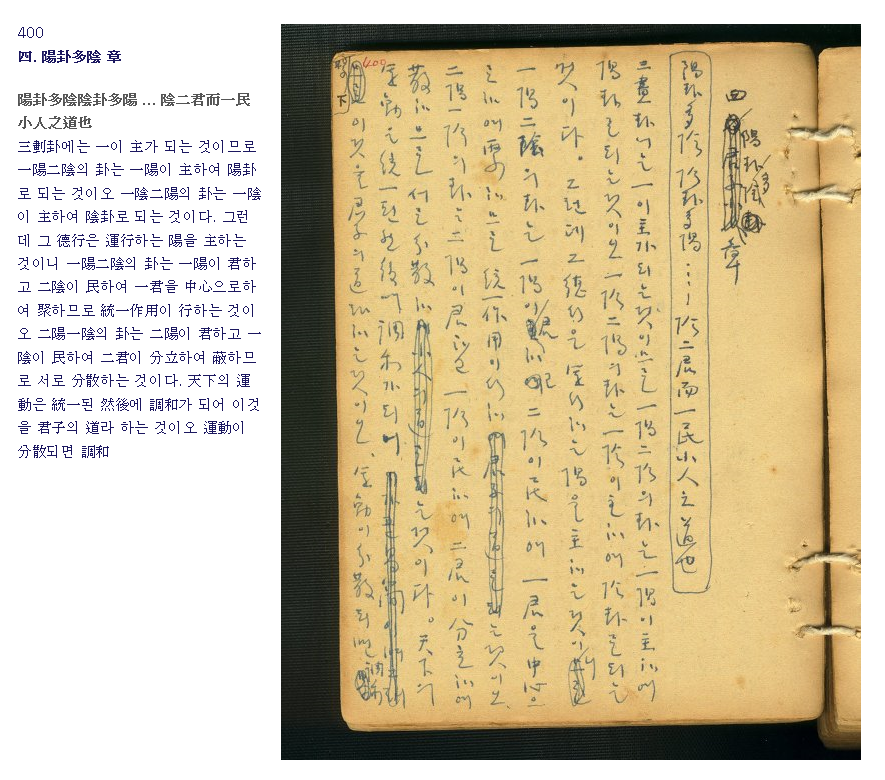 400
四. 陽卦多陰 章
陽卦多陰陰卦多陽 … 陰二君而一民
小人之道也
三劃卦에는 一이 主가 되는 것이므로
一陽二陰의 卦는 一陽이 主하여 陽卦
로 되는 것이오 一陰二陽의 卦는 一陰
이 主하여 陰卦로 되는 것이다. 그런
데 그 德行은 運行하는 陽을 主하는
것이니 一陽二陰의 卦는 一陽이 君하
고 二陰이 民하여 一君을 中心으로하
여 聚하므로 統一作用이 行하는 것이
오 二陽一陰의 卦는 二陽이 君하고 一
陰이 民하여 二君이 分立하여 蔽하므
로 서로 分散하는 것이다. 天下의 運
動은 統一된 然後에 調和가 되어 이것
을 君子의 道라 하는 것이오 運動이
分散되면 調和
四 陽卦多陰 章
陽卦多陰 陰卦多陽 ..... 陰二君而一民小人之道也
三畫卦에는 一이 主가 되는 것이므로 一陽二陰의 卦는 一陽이 主하여
陽卦로 되는 것이오 一陰二陽의 卦는 一陰이 主하여 陰卦로 되는
것이다。그런데 그 德行은 運行하는 陽을 主하는 것이니
一陽二陰의 卦는 一陽이 君하고 二陰이 民하여 一君을 中心으
로하여 聚하므로 統一作用이 行하는 것이오
二陽一陰의 卦는 二陽이 君하고 一陰이 民하여 二君이 分立하여
蔽하므로 서로 分散하는 것이다。天下의
運動은 統一된 然後에 調和가 되어
이것을 君子의 道라 하는 것이오、運動이 分散되면 調和
400
下